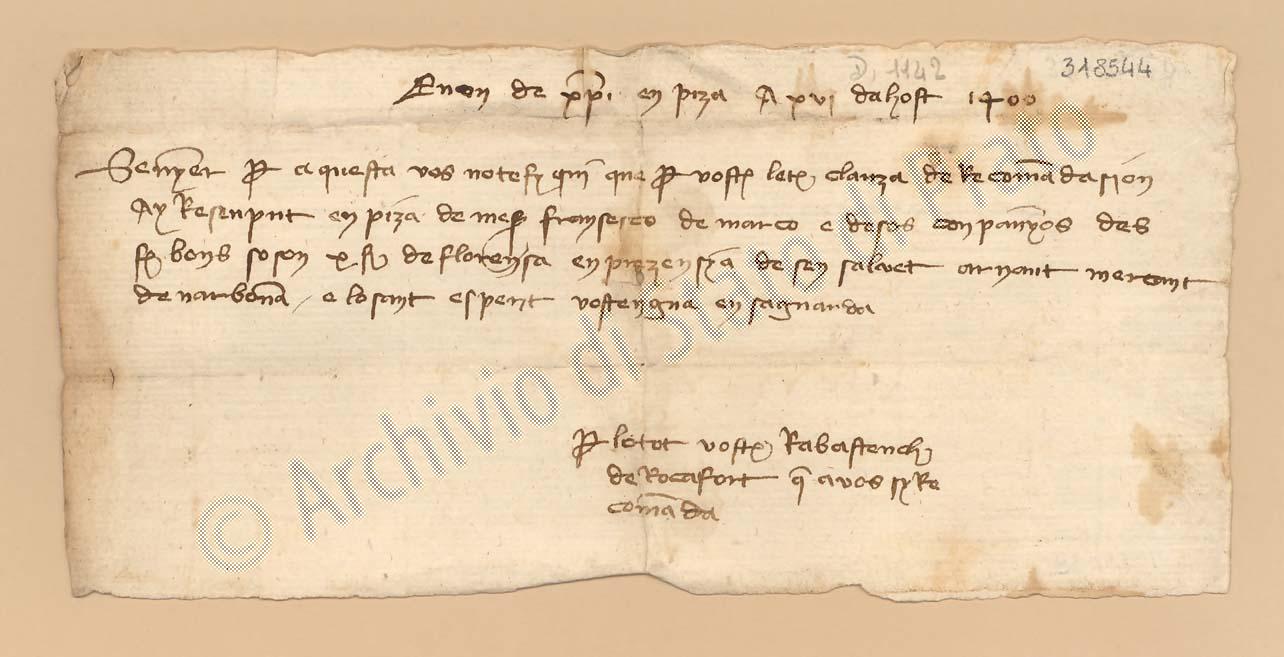 D. 1142
318544
En nom de xpi en piza A xvi dahost 1400
Senyer p aquesta vos notefy que p vostr letr clauza de Recomandasion
Ay Resenput en piza de mer fransesco de marco e de sos conpanyos des
fr bons so son x fr de florensa en prezensya de sen salvet arnaut mercant
de narbona e lo sant esperit vos tengua en sa guarda
p letot vostr Rabastench
de Rocafort q a vos sy Re
comanda
© Archivio di Stato di Prato